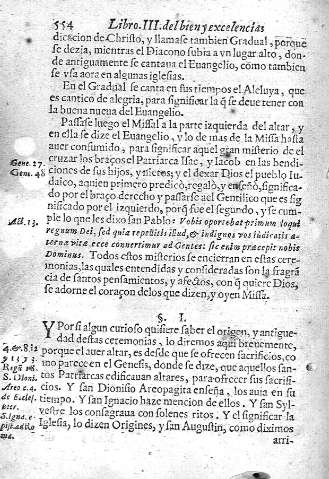 554 Libro.III.del bien y excelencias
dicacion de Christo, y llamase tambien Gradual, porque
se dezia, mientras el Diacono subia a vn lugar alto, don-
de antiguamente se cantaua el Euangelio, como tambien
se vsa aora en algunas iglesias.
En el Gradual se canta en sus tiempos el Aleluya, que
es cantico de alegria, para significar la q̃ se deue tener con
la buena nueua del Euangelio.
Passase luego el Missal a la parte izquierda del altar, y
en ella se dize el Euangelio, y lo de mas de la Missa hasta
auer consumido, para significar aquel gran misterio de el
Gene. 27.
Gen. 48
cruzar los braços el Patriarca Isac, y Iacob en las bendi-
ciones de sus hijos, y nietos; y el dexar Dios el pueblo Iu-
daico, a quien primero predicò, regalò, y enseñò, significa-
do por el braço derecho y passarse al Gentilico que es sig
nificado por el izquierdo, porq̃ fue el segundo, y se cum-
Act. 13.
ple lo que les dixo san Pablo: Vobis oportebat primum loqui
regnum Dei, sed quia repellitis illud, & indignos vos iudicatis a-
terna vita ecce conuertimur ad Gentes: sic enim præcepit nobis
Dominus. Todos estos misterios se encierran en estas cere-
monias, las quales entendidas y consideradas son la fragrã
cia de santos pensamientos, y afectos, con q̃ quiere Dios,
se adorne el coraçon de los que dizen, y oyen Missa.
§. I.
Y Por si algun curioso quisiere saber el origen, y antigue-
dad destas ceremonias, lo diremos aqui breuemente,
porque el auer altar, es desde que se ofrecen sacrificios, co
mo parece en el Genesis, donde se dize, que aquellos san-
tos Patriarcas edificauan altares, para ofrecer sus sacrifi-
S. Dioni.
Areo c.4.
de Eccles.
cios. Y san Dionisio Areopagita enseña, los auia en su
tiempo. Y san Ignacio haze mencion de ellos. Y san Syl-
vestre los consagraua con solenes ritos. Y el significar la
S. Igna. e-
Iglesia, lo dizen Origines, y san Augustin, como diximos
arri-